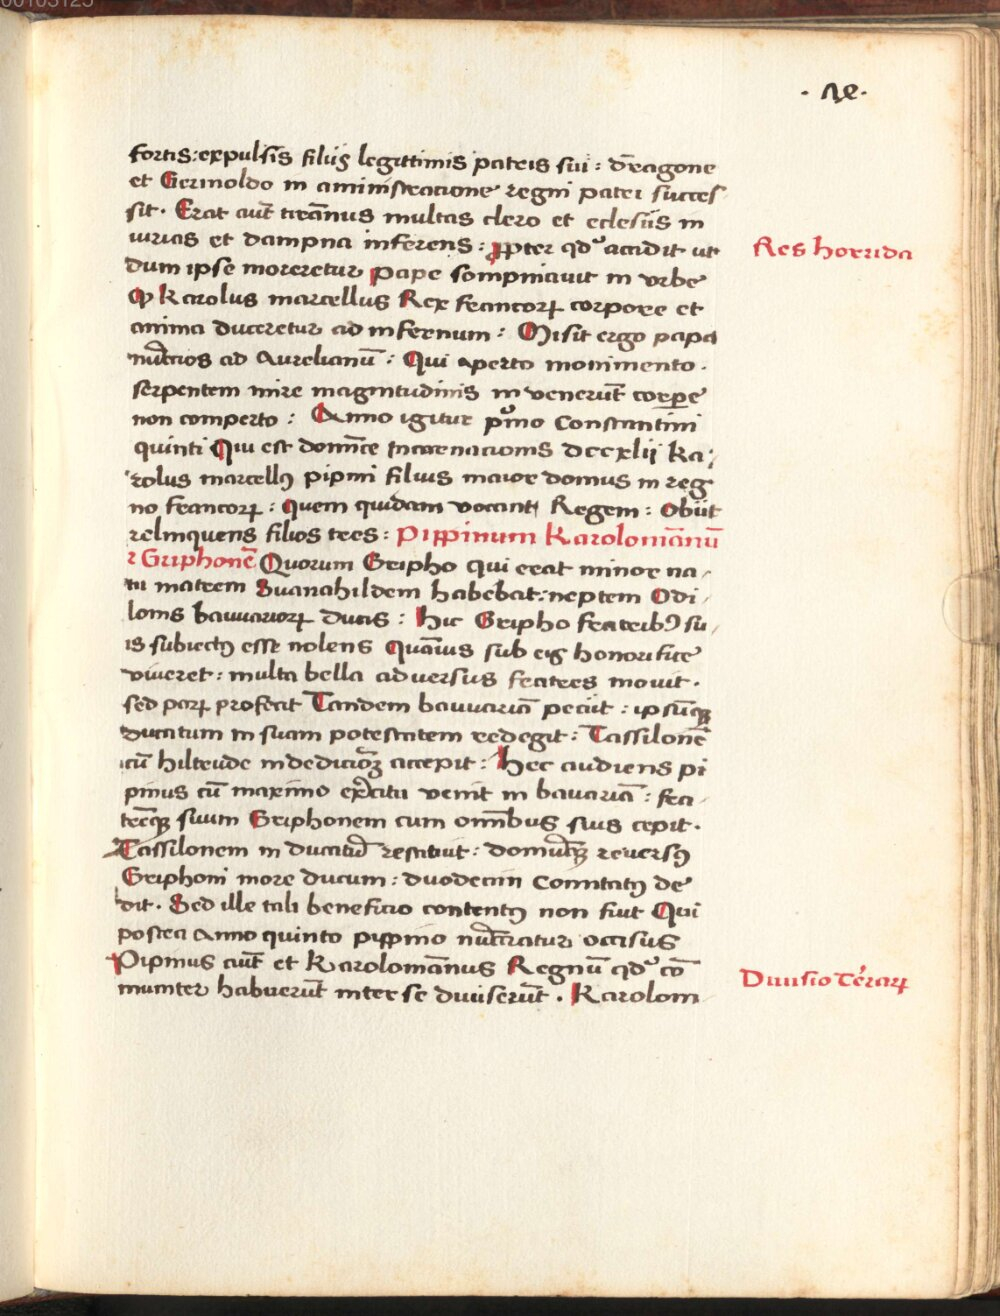 fortis: expulsis filiis legittimis patris sui: dragone
et Grimoldo in aministracione regni patri succes
sit. Erat aut̄ tirānus multas clero et eclesiis in
iurias et dampna inferens: ꝓpter qd' accidit ut
Res horrida
dum ipse moreretur Pape sompniavit in vrbe
Ꝙ Karolus marcellus Rex francorꝝ corpore et
anima duceretur ad infernum: Misit ergo papa
nūccios ad Aurelianū: Qui aperto monimento.
serpentem mire magnitudinis in venerūt corpe
non comperto: Anno igitur pimo Constantini
quinti Qui est domīce Incarnacionis dccxlii Ka
rolus marcellꝰ pipini filius maior domus in reg
no francorꝝ: Quem quidam vocant Regem: Obiit
relinquens filios tres: Pippinum Karolomānū
⁊ Griphonē Quorum Gripho qui erat minor na
tu matrem Suanahildem habebat: neptem Odi
lonis bauuariorꝝ Ducis: Hic Gripho fratribꝰ su
is subiectꝰ esse nolens Quāuis sub eis honorifice
viveret: multa bella adversus fratres movit.
sed parꝝ profecit Tandem bauuariā peciit: ipsūqꝫ
ducatum in suam potestatem redegit: Tassilonē
cū hiltrude in dedicioꝫ accepit: Hec audiens pi
pinus cū maximo exercitu venit in bavariā: fra
trēqꝫ suum Griphonem cum omībus suis cepit.
Tassilonem in ducatū restituit: domūqꝫ reversꝰ
Griphoni more ducum: duodecim Comitatꝰ de
dit. Sed ille tali beneficio contentꝰ non fuit Qui
postea Anno quinto pippino nūcciatur occisus
Pipinus aut̄ et Karolomānus Regnū qd' cō
muniter habuerūt inter se diviserūt. Karolom
Divisio Terrarꝝ